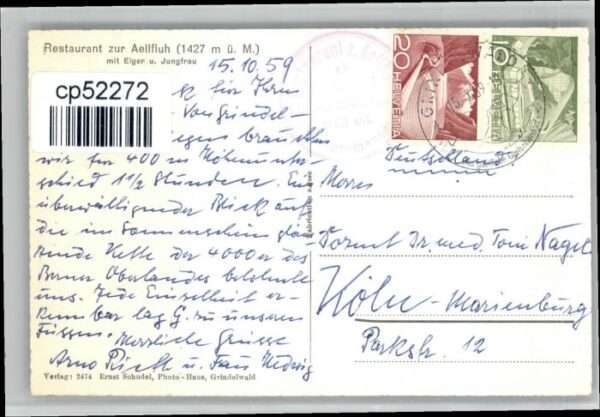 Restaurant zur Aellfluh (1427 m ü. M.)
mit Eiger u. Jungfrau
15.10.59
cp52272
k für Ihren
Von Grindel-
wegen brauchten
wir für 400 m Höhenunter-
schied 1 1/2 Stunden. Ein
überwältigender Blick auf
die im Sonnenschein glän-
zende Kette der 4000er des
Berner Oberlandes belohnte
uns. Jede Einzelheit er-
kennbar lag G. zu unseren
Füssen. Herzliche Grüsse
Arno u. Frau Hedwig
Verlag: 2474 Ernst Schudel, Photo-Haus, Grindelwald
20
HELVETIA
10
HELVETIA
GRINDELWALD
Deutschland
Herrn
Dozent Dr. med. Toni Nagel
Köln-Marienburg
Parkstr. 12